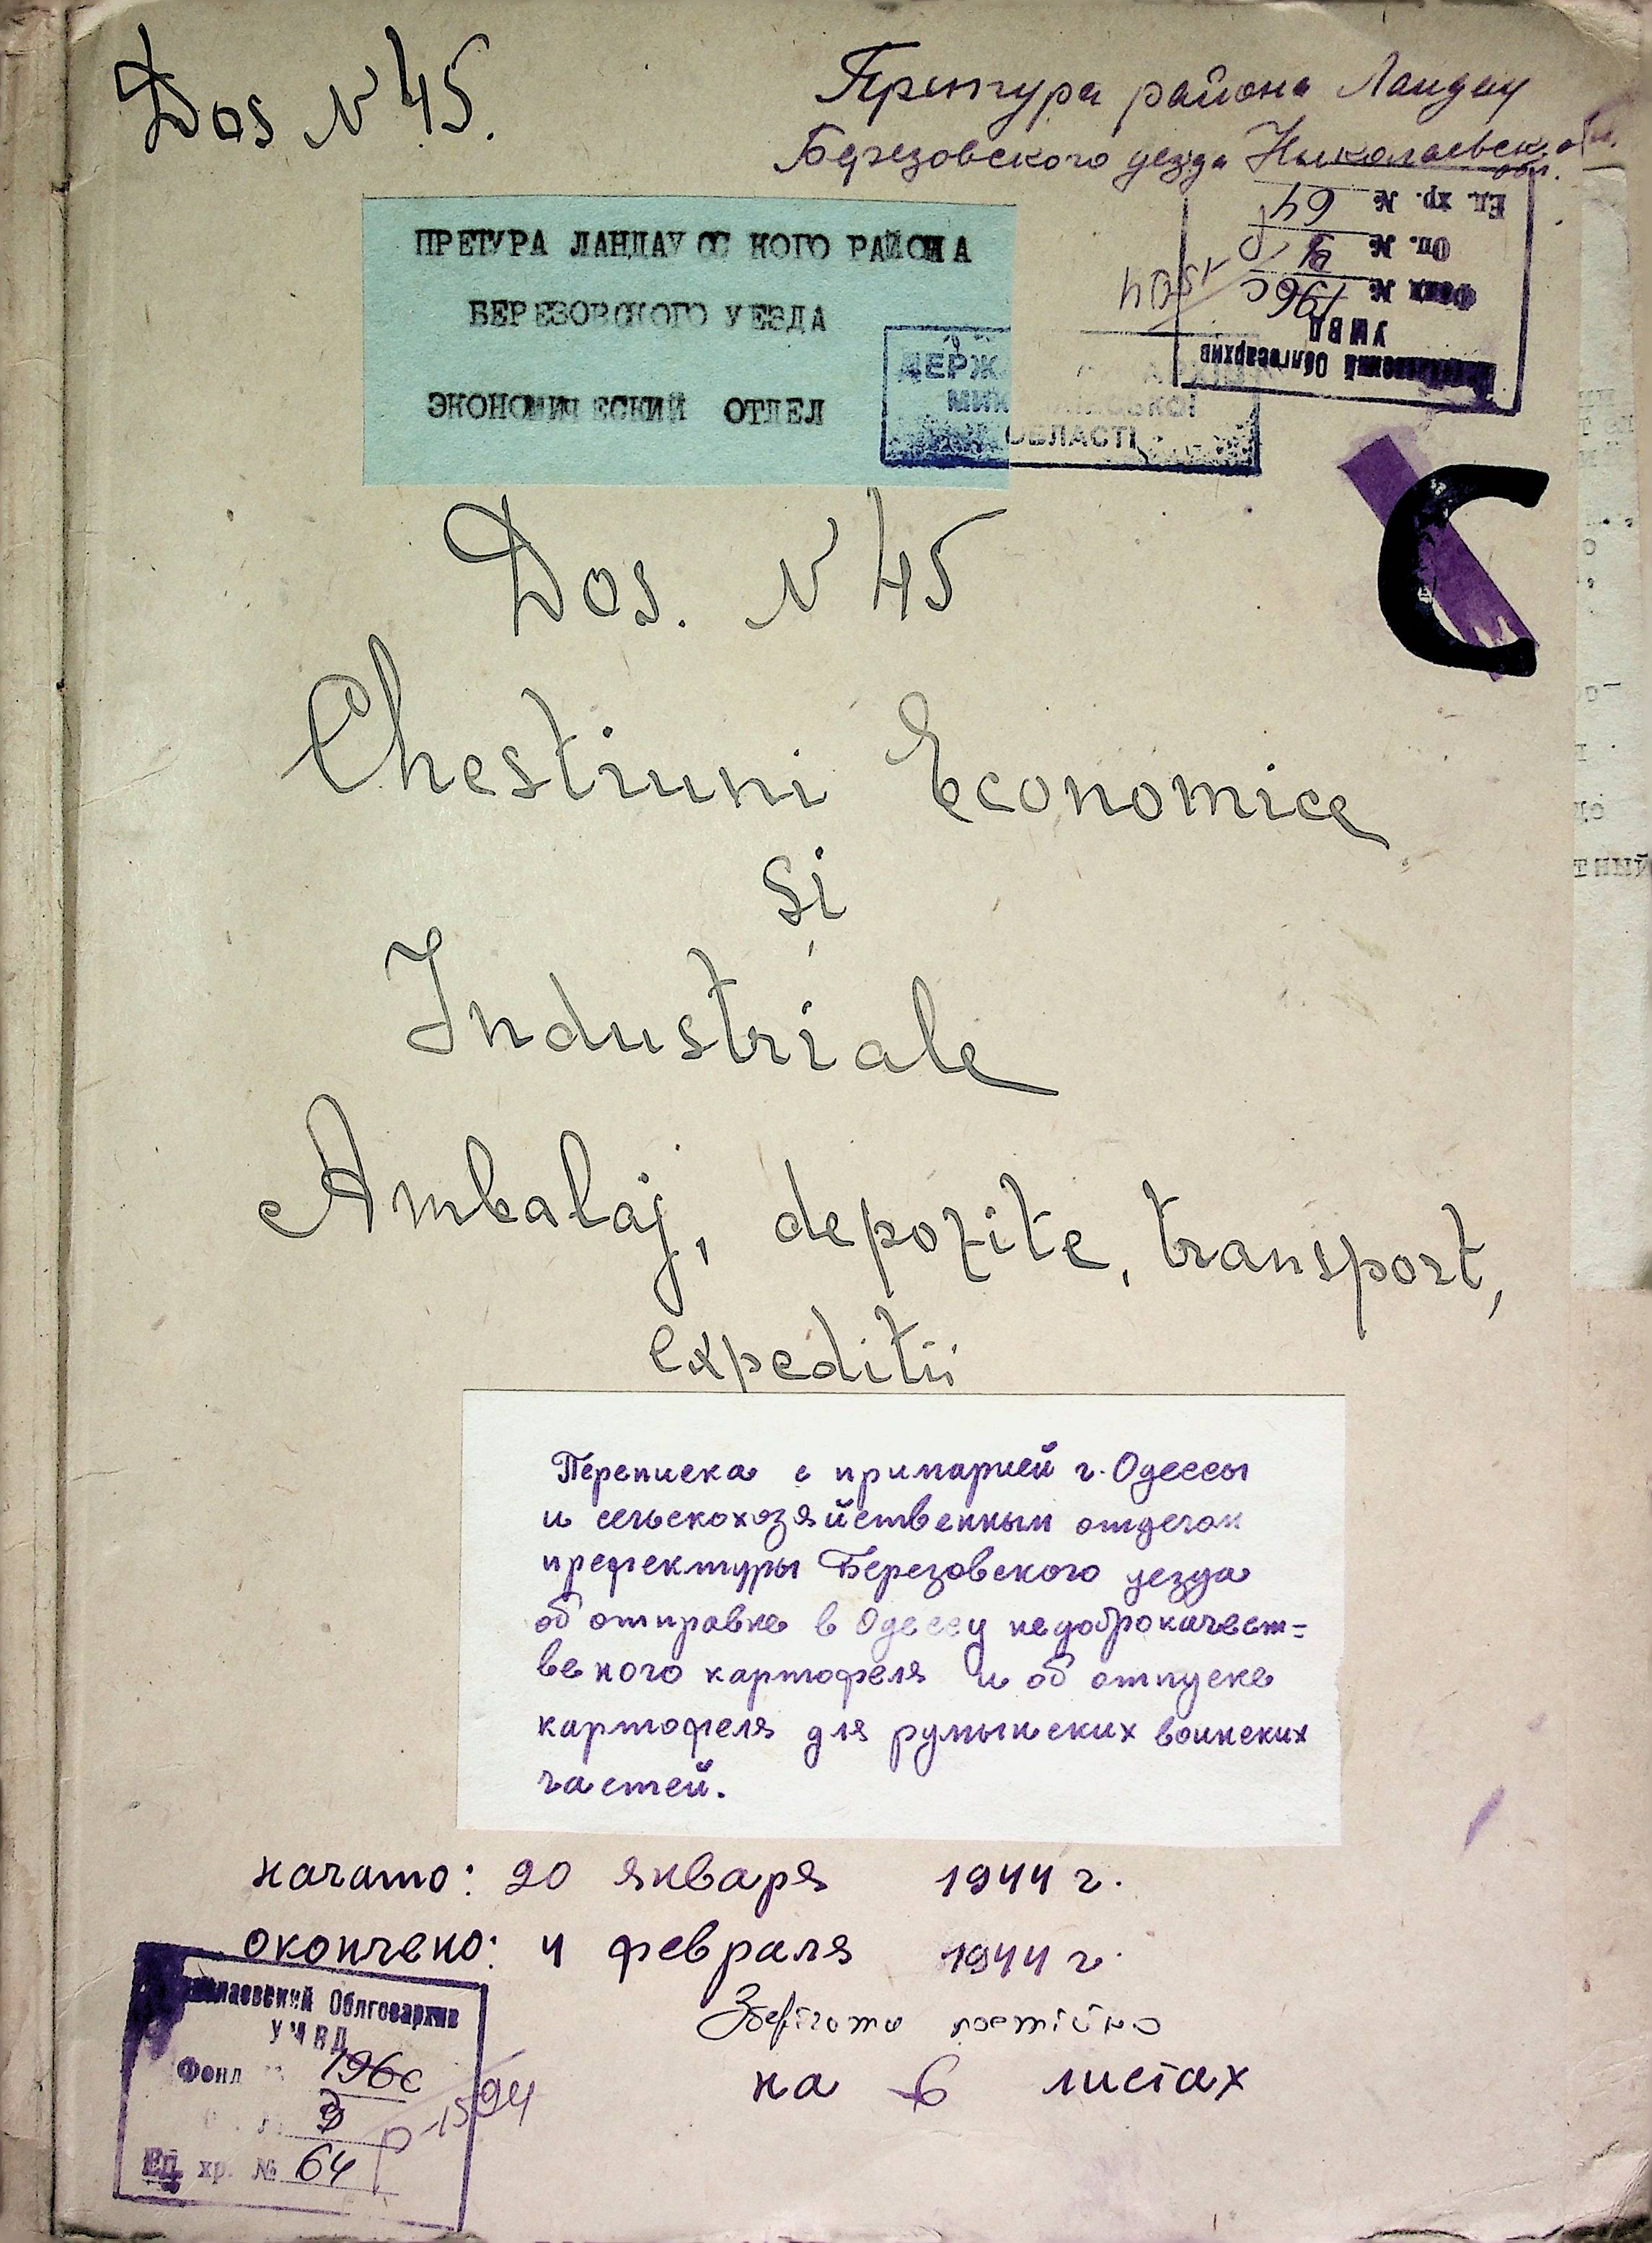 Dos N 45.
Претура района Ландау
Березовского уезда Николаевск. обл.
ПРЕТУРА ЛАНДАУССКОГО РАЙОНА
БЕРЕЗОВСКОГО УЕЗДА
ЭКОНОМИЧЕСКИЙ ОТДЕЛ
Облгосархив
УМВД
Фонд № 196с
Оп. №
Ед. хр. № 64
ДЕРЖ
ОБЛАСТІ
С
Dos. N 45
Chestiuni Economice
și
Industriale
Ambalaj, depozite, transport,
expeditii
Переписка с примарией г. Одессы
и сельскохозяйственным отделом
префектуры Березовского уезда
об отправке в Одессу недоброкачест=
веного картофеля и об отпуске
картофеля для румынских воинских
частей.
начато: 20 января 1944 г.
окончено: 4 февраля 1944 г.
Зберігати постійно
на 6 листах
Облгосархив
УМВД
Фонд 196с
Ед. хр. № 64